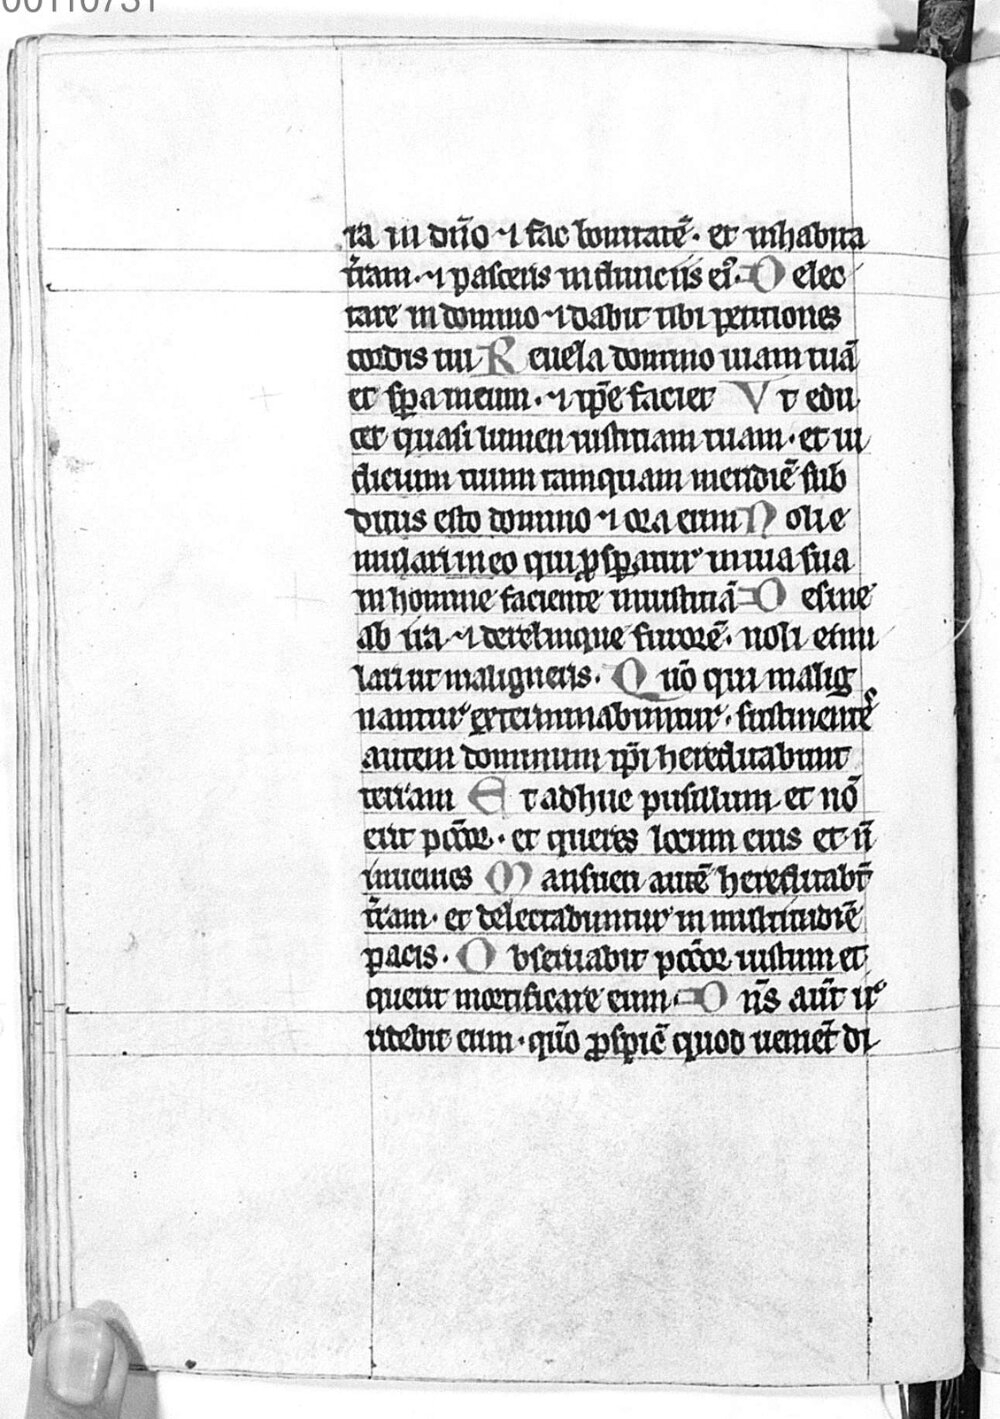 00110731
ra in dn̄o ⁊ fac bonitatē. et inhabita
t̄ram. ⁊ pasceris in diuiciis eiꝰ. Delec
tare in domino ⁊ dabit tibi petitiones
cordis tui Reuela domino uiam tuā
et sꝑa in eum. ⁊ ip̄e faciet Vt edu
cet quasi lumen iustitiam tuam. et iu
dicium tuum tamquam meridiē sub
ditus esto domino ⁊ ora eum Noli e
mulari in eo qui ꝓsꝑatur in uia sua
in homine faciente iniustitiā Desine
ab ira ⁊ derelinque furorē. noli emu
lari ut maligneris. Qūo qui malig
nantur exterminabuntur. sustinentes
autem dominum ip̄i hereditabunt
terram Et adhuc pusillum et nō
erit pc̄c̄or. et queres locum eius et n̄
inuenies Mansueti autē hereditabt̄
t̄ram. et delectabuntur in multitudiē
pacis. Obseruabit pc̄c̄or iustum et
querit mortificare eum. Dn̄s aut̄ ir
ridebit eum. qūo ꝓspic̄ quod ueniet̄ di